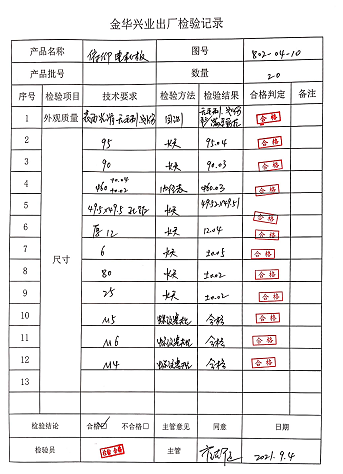 金华兴业出厂检验记录
产品名称 电机板 图号 802-04-10
产品批号 数量 20
序号 检验项目 技术要求 检验方法 检验结果 合格判定 备注
1 外观质量 目测 合格
2 95 卡尺 95.04 合格
3 90 卡尺 90.03 合格
4 φ60 +0.04 +0.02 内径表 φ60.03 合格
5 49.5×49.5 卡尺 49.52×49.51 合格
6 厚12 卡尺 12.04 合格
7 尺寸 6 卡尺 ±0.05 合格
8 80 卡尺 ±0.02 合格
9 25 卡尺 ±0.02 合格
10 M5 螺纹塞规 合格 合格
11 M6 螺纹塞规 合格 合格
12 M4 螺纹塞规 合格 合格
13
检验结论 合格☑ 不合格□ 主管意见 同意 日期
检验员 主管 2021.9.4